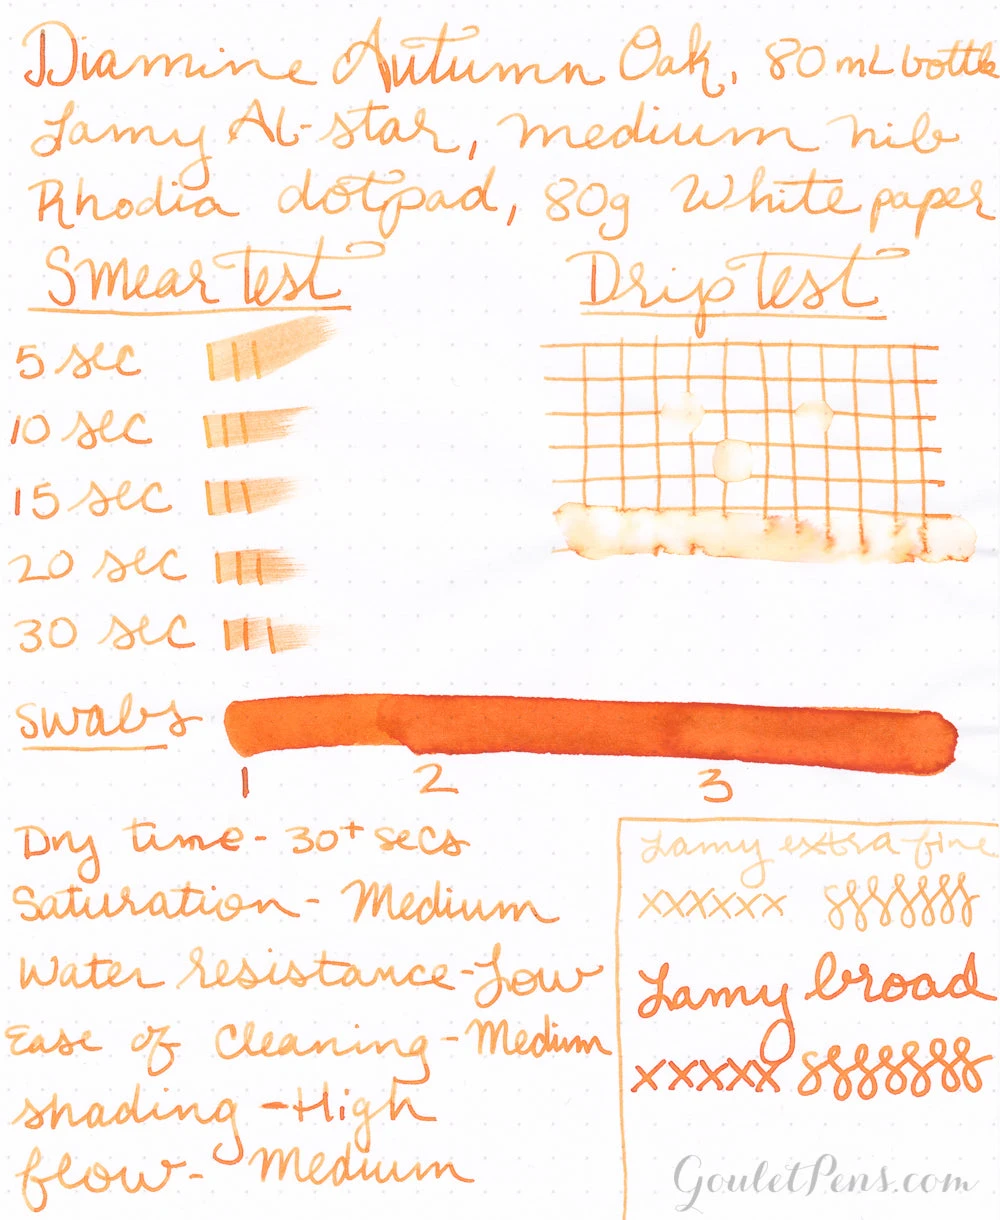 Diamine Autumn Oak, 80mL bottle
Lamy Al-star, medium nib
Rhodia dotpad, 80g White paper
Smear Test
Drip Test
5 sec
10 sec
15 sec
20 sec
30 sec
Swabs
1 2 3
Dry time- 30+ secs
Saturation- Medium
Water resistance-Low
Ease of Cleaning-Medium
shading -High
flow- Medium
Lamy extra-fine
xxxxxx
Lamy broad
xxxxx
GouletPens.com